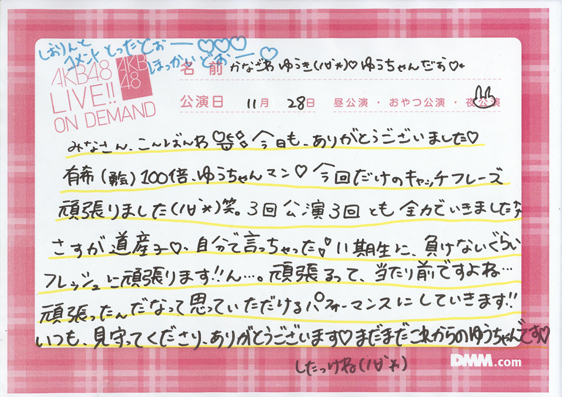 しおりんと
コメントとったどぉー♡♡♡
ほっかいどぉー♡
AKB48
LIVE!!
ON DEMAND
AKB
48
名前 かなざわ ゆうき(ﾉ∀`*)♡ゆうちゃんだお♡*
公演日 11月 28日 昼公演・おやつ公演・夜公演
みなさん、こんばんわ 今日も、ありがとうございました♡
有希(勇気)100倍、ゆうちゃんマン♡ 今回だけのキャッチフレーズ
頑張りました(ﾉ∀`*)笑。3回公演3回とも 全力でいきました
さすが道産子♡、自分で言っちゃった 11期生に、負けないぐらい
フレッシュに頑張ります!!ん…。頑張るって、当たり前ですよね…
頑張ったんだなって思っていただけるパフォーマンスにしていきます!!
いつも、見守ってくださり、ありがとうございます♡まだまだこれからのゆうちゃんです♡
したっけね(ﾉ∀`*)
DMM.com